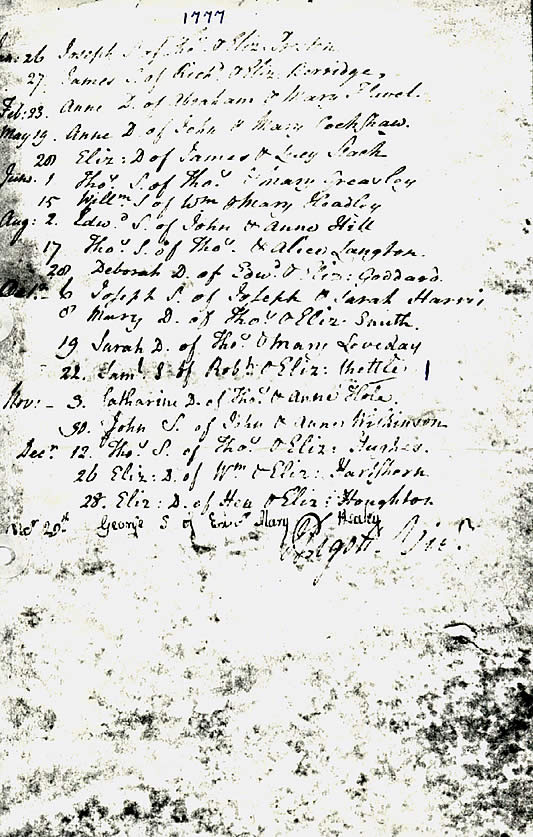 1777
Jan: 26 Joseph S. of Tho.s & Eliz:
27. James S. of Rich.d & Eliz. Berridge.
Feb: 23. Anne D. of Abraham & Mary
May 19. Anne D of John & Mary Cockshaw.
28 Eliz: D of James & Lucy
June. 1 Tho.s S. of Tho.s & Mary Greasley
15 Will.m S of Wm & Mary Headley
Aug: 2. Edw.d S. of John & Anne Hill
17 Tho.s S. of Tho.s & Alice Langton.
28 Deborah D. of Edw.d & Eliz: Goddard.
6 Joseph S. of Joseph & Sarah Harris
8 Mary D. of Tho.s & Eliz. Smith.
19 Sarah D. of Tho.s & Mary Loveday
22. Sam.l S of Rob.t & Eliz:
Nov: - 3. Catharine D. of Tho.s & Anne Hole.
30. John S. of John & Anne Wilkinson
Dec.r 12. Tho.s S. of Tho.s & Eliz: Hughes.
26 Eliz: D. of Wm & Eliz: Hartshorn
28. Eliz: D. of Hen & Eliz: Houghton
29th George S of Mary Healey
Pigott. Vic.r